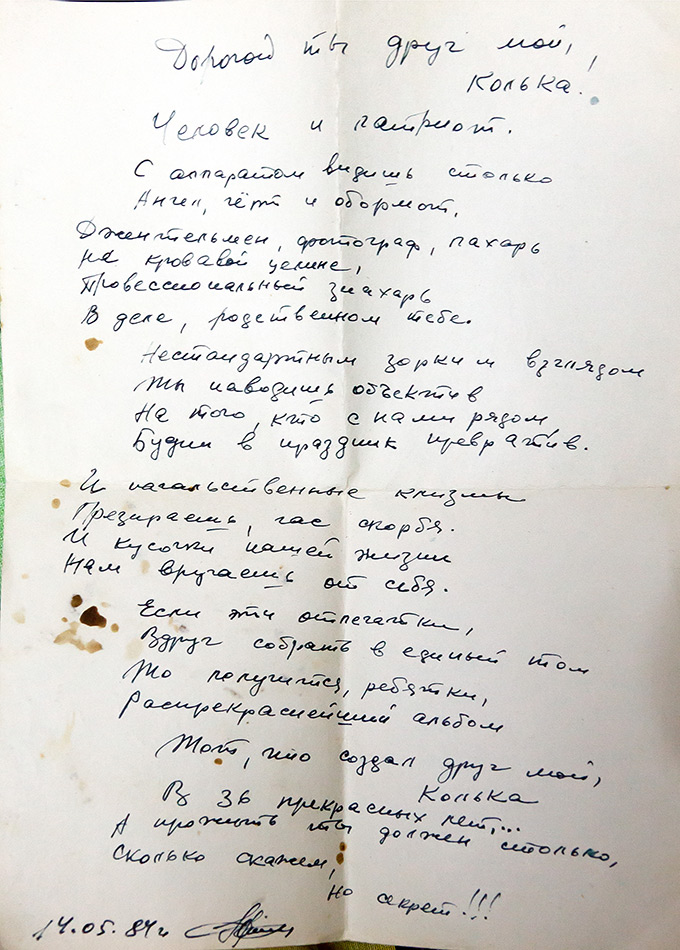 Дорогой ты друг мой,
Колька!
Человек и патриот.
С аппаратом видишь столько
Ангел, чёрт и обормот,
Джентельмен, фотограф, пахарь
На кровавой целине,
Провессиональный знахарь
В деле, родственном тебе.
Нестандартным зорким взглядом
Ты наводишь объектив
На того, кто с нами рядом,
Будни в праздник превратив.
И начальственные клизмы
Презираешь, час скорбя.
И кусочки нашей жизни
Нам вручаешь от себя.
Если эти отпечатки,
Вдруг собрать в единый том
То получится, ребятки,
Распрекраснейший альбом
Тот, что создал друг мой,
Колька
В 36 прекрасных лет,...
А прожить ты должен столько,
Сколько скажем,
но секрет!!!
14.05.84г